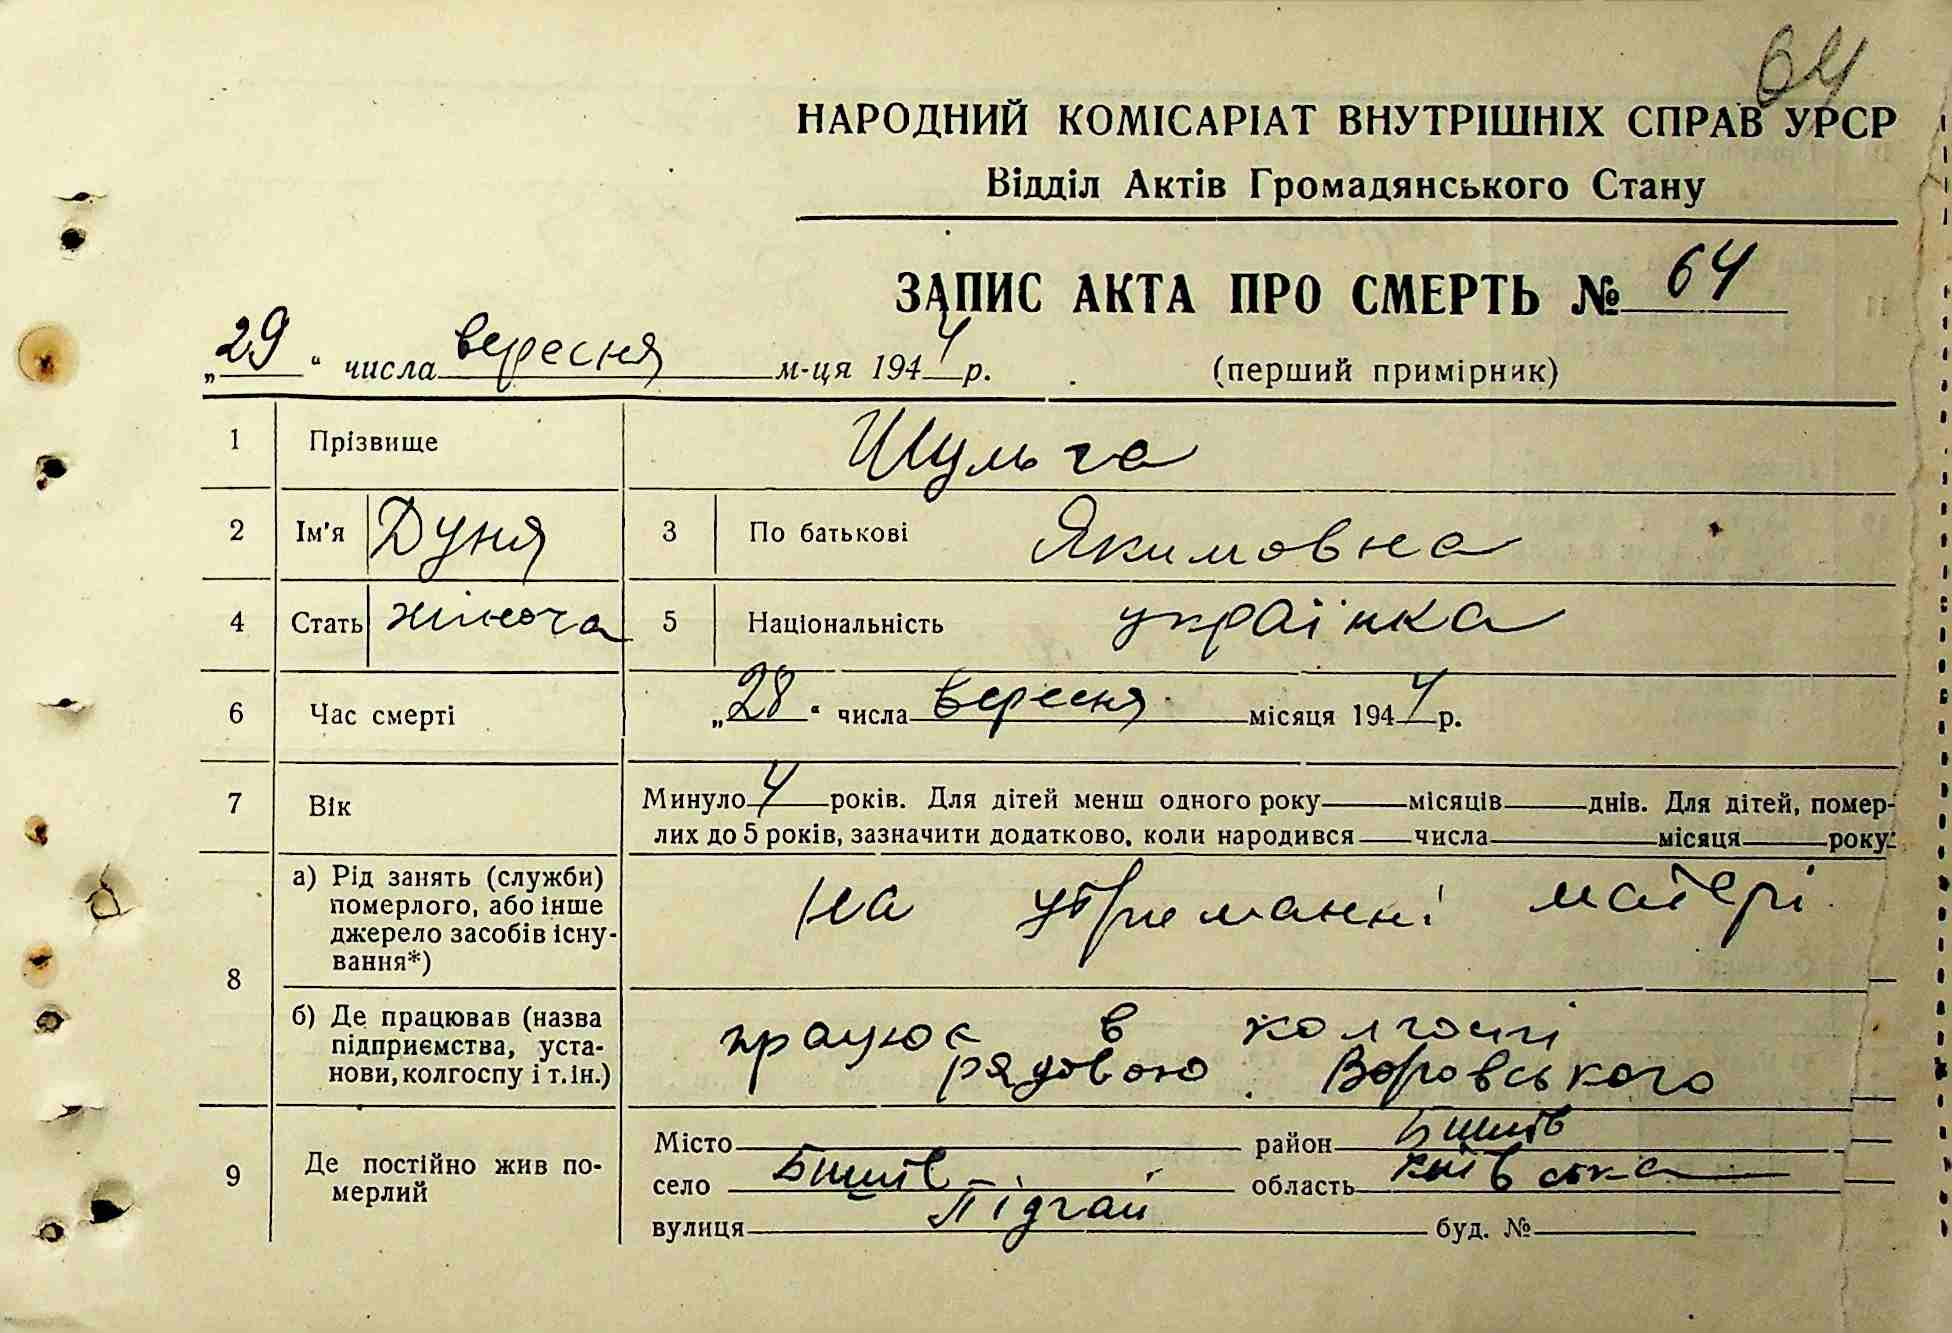 64
НАРОДНИЙ КОМІСАРІАТ ВНУТРІШНІХ СПРАВ УРСР
Відділ Актів Громадянського Стану
ЗАПИС АКТА ПРО СМЕРТЬ № 64
„29“ числа вересня м-ця 1944 р. (перший примірник)
1 Прізвище Шульга
2 Ім'я Дуня 3 По батькові Якимовна
4 Стать жіноча 5 Національність українка
6 Час смерті „28“ числа вересня місяця 1944 р.
7 Вік Минуло 4 років. Для дітей менш одного року місяців днів. Для дітей, помер-
лих до 5 років, зазначити додатково, коли народився числа місяця року:
8 а) Рід занять (служби) померлого, або інше джерело засобів існу-вання*) на утриманні матері
б) Де працював (назва підприємства, уста-нови, колгоспу і т. ін.) працює в колгоспі
рядовою Воровського
9 Де постійно жив по-мерлий Місто район Бишів
село Бишів область Київська
вулиця Підгай буд. №